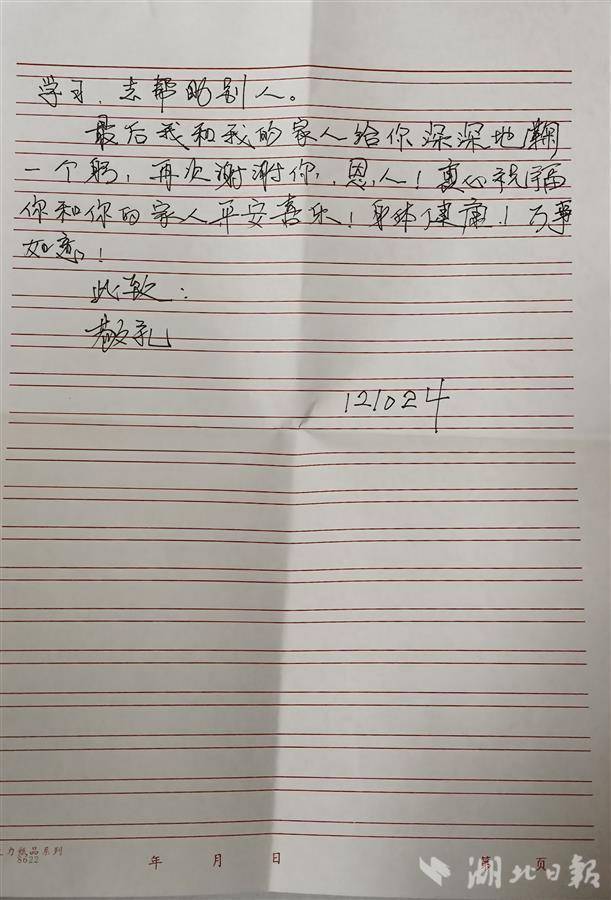 学习，去帮助别人。
最后我和我的家人给你深深地鞠
一个躬，再次谢谢你，恩人！真心祝福
你和你的家人平安喜乐！身体健康！万事
如意！
此致：
敬礼
121024
力纸品系列
8622
年 月 日
第 页
湖北日报